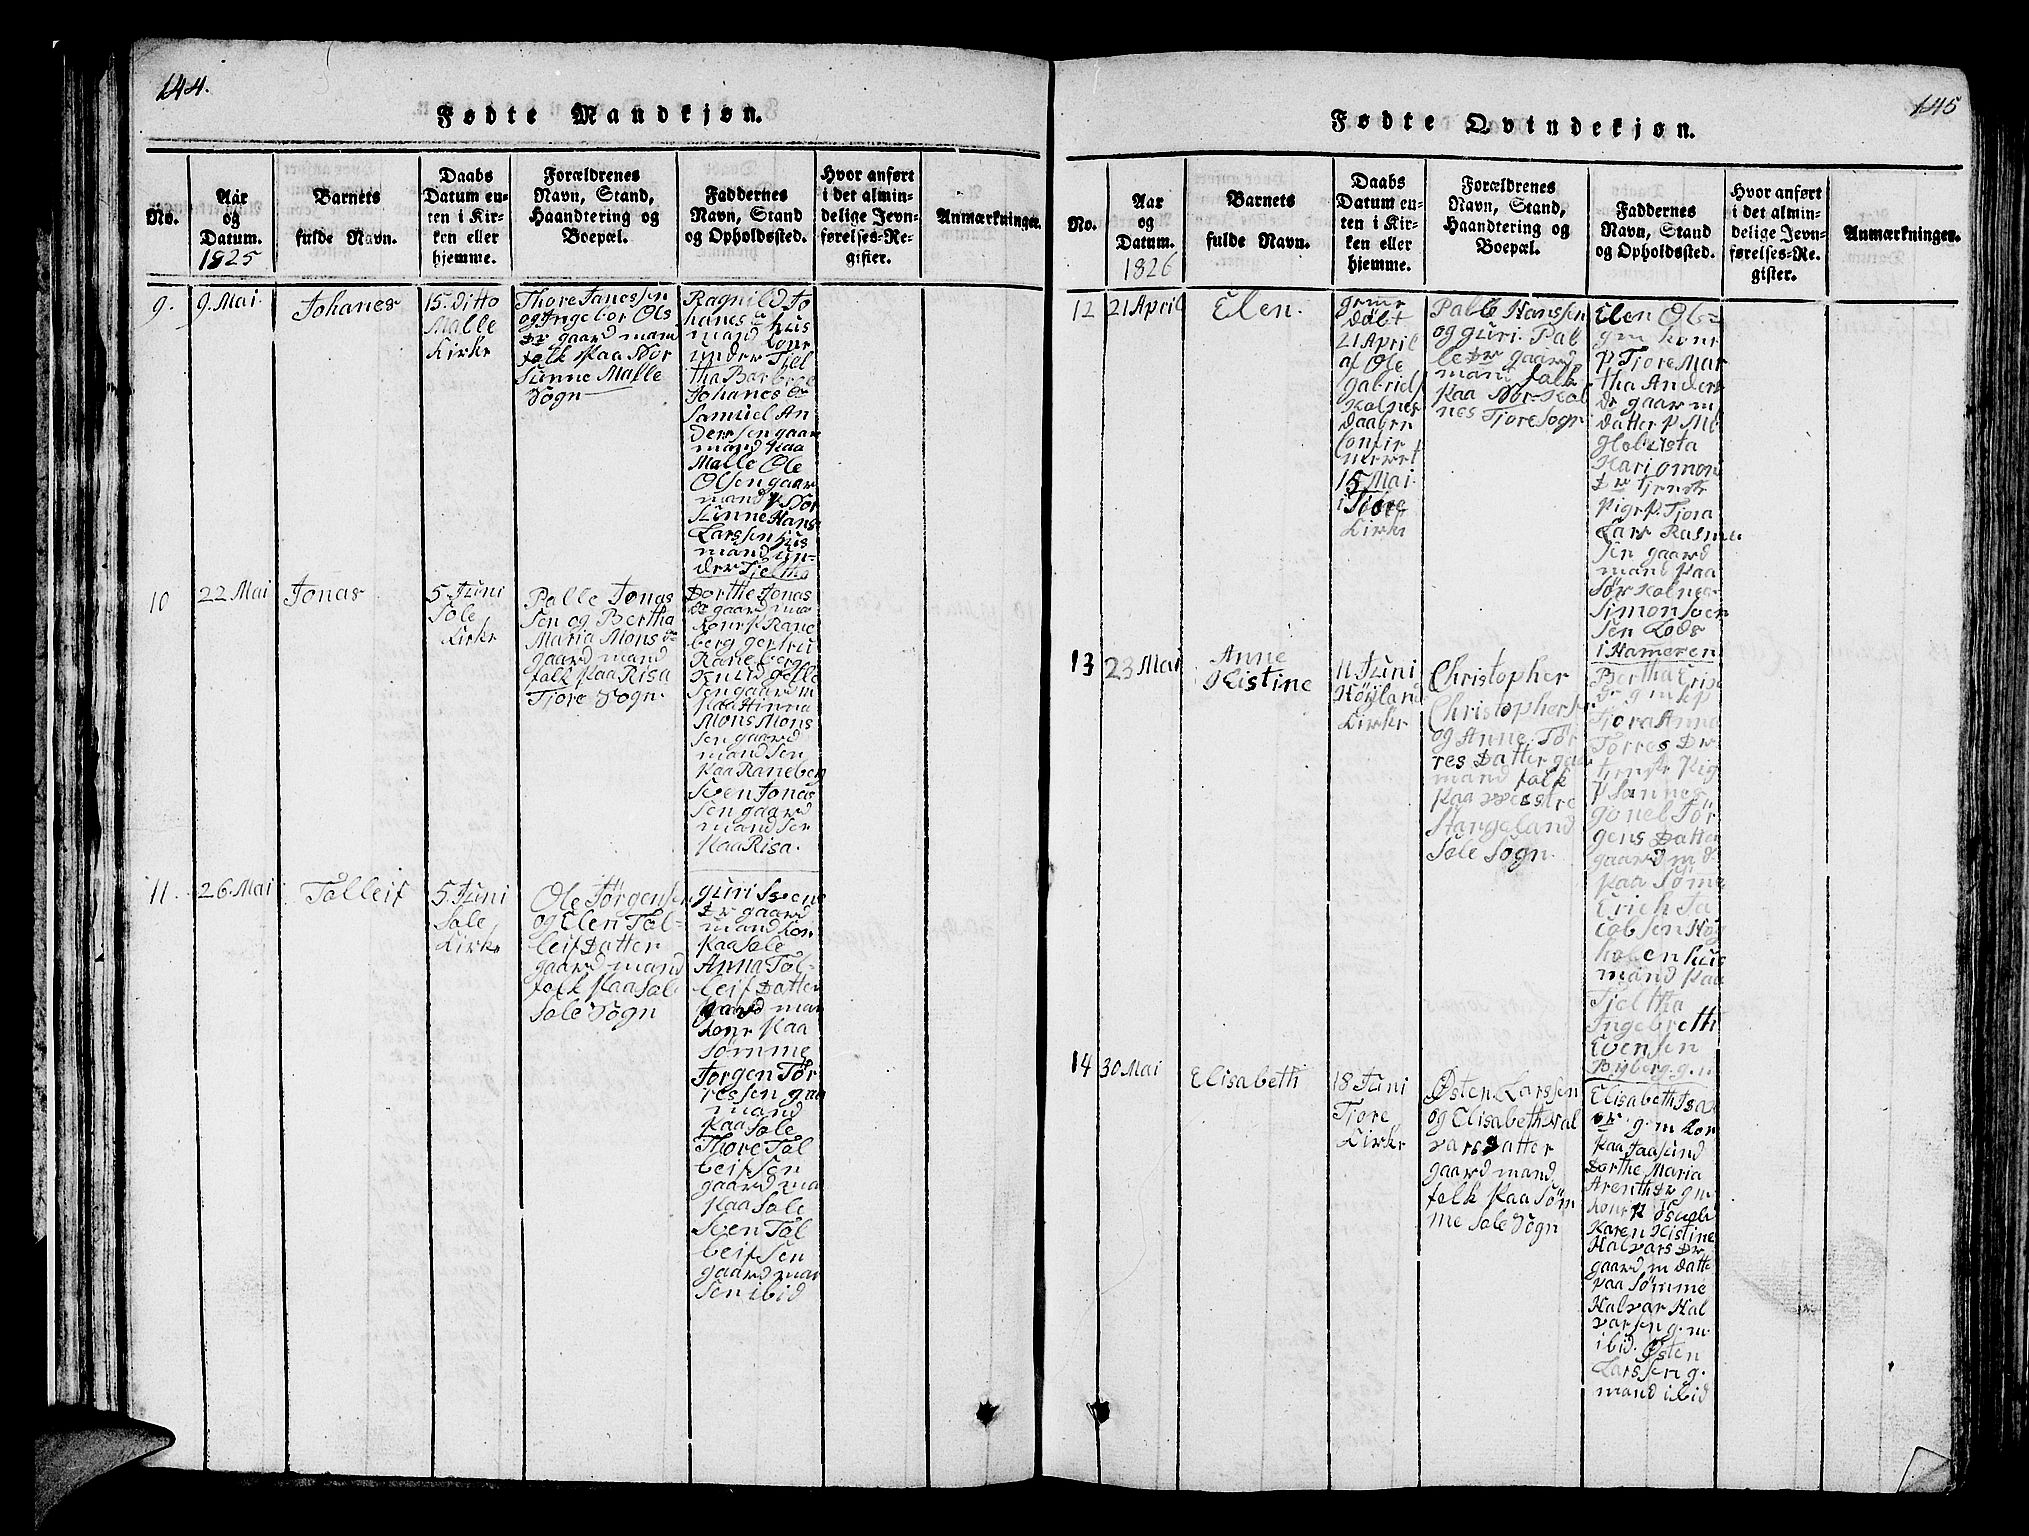 144.
Fødte Mandkjøn.
No.
Aar
og
Datum.
1825
Barnets
fulde Navn.
Daabs
Datum en-
ten i Kir-
ken eller
hjemme.
Forældrenes
Navn, Stand,
Haandtering og
Boepæl.
Faddernes
Navn, Stand
og Opholdssted.
Hvor anført
i det almin-
delige Jevn-
førelses-Re-
gister.
Anmærkninger.
9.
9. Mai
Johanes
15. ditto
Malle
Kirke
Thore Janessen
og Ingebor Ols
Dr gaard mand
folk paa Nor
Sunne Malle
Sogn
Ragnild Jo
hanes Dr hus
mand kone
under Tjel
tha Barbroe
Johanes Dr
Samuel An
dersen gaar
mand paa
Malle Ole
Olsen gaar
mand p Nor
Sunne Hans
Larssen hus
mand un-
der Tjeltha
10
22 Mai
Jonas
5 Juni
Sole
Kirke
Palle Jonas
sen og Bertha
Maria Mons Dr
gaard mand
folk paa Risa
Tjore Sogn
Dorthe Jonas
Dr gaard m
kone p Rane
berg gertru
Raneberg
Knud gelle
sen gaard m
paa Hinna
Mons Mons
sen gaard
mand sen
paa Raneberg
Sven Jonas
sen gaard
mand sen
paa Risa.
11.
26. Mai
Tolleif
5 Juni
Sole
Kirke
Ole Jørgensen
og Elen Tol-
leif Datter
gaard mand
folk paa Sole
Sole Sogn
guri Svens
Dr gaard
mand kon
paa Sole
Anna Tol-
leif Datter
gaard man
kone paa
Sømme
Jorgen Tør
ressen gaa
mand
paa Sole
Thore Tol
leifsen
gaard ma
paa Sole
Sven Tol
leifsen
gaard man
sen ibid
145
Fødte Qvindekjøn.
No.
Aar
og
Datum.
1826
Barnets
fulde Navn.
Daabs
Datum en-
ten i Kir-
ken eller
hjemme.
Forældrenes
Navn, Stand,
Haandtering og
Boepæl.
Faddernes
Navn, Stand
og Opholdssted.
Hvor anført
i det almin-
delige Jevn-
førelses-Re-
gister.
Anmærkninger.
12
21 April
Elen.
døbt
21 April
af Ole
Gabriels
Kolnes
daaben
confir
meret
15 Mai
i Tjore
Kirke
Palle Hanssen
og guri Pal
le Dr gaard
mand folk
paa Nor-Kol
nes Tjore Sogn
Elen Ols
g m kone
p Tjore Mar
tha Anders
Dr gaar m
datter p
Kari omon
Dr Tjenste
pige p. Tjora
Lars Rasmu
sen gaard
mand paa
Sør Kolnes
Simon Sven
sen Lods
i Hameren
13
23 Mai
Anne
Kistine
11 Juni
Høyland
Kirke
Christopher
Christophers
og Anne Tør
res Datter gaa
mand folk
paa vestre
Stangeland
Sole Sogn
Bertha Eri
Dr g m k p
Tjora Anna
Torres Dr
tjenste pig
p Sannes
gonel Tør
gens Datte
gaard m d
paa Sømme
Erich Ja
cobsen Høg
holen hus
mand paa
Tjeltha
Ingebreth
Evensen
Byberg g. m
14
30 Mai
Elisabeth
18 Juni
Tjore
Kirke
Østen Larssen
og Elisabeth Hal
vars Datter
gaard mand
folk paa Søm
me Sole Sogn
Elisabeth Isa
Dr. g. m kon
paa Jaasund
Dorthe Maria
Arenth Dr g m
kone p
Karen Kistine
Halvars Dr
gaard m datte
paa Sømme
Halvar Hal
varsen g. m.
ibid. Østen
Larssen g.
mand ibid